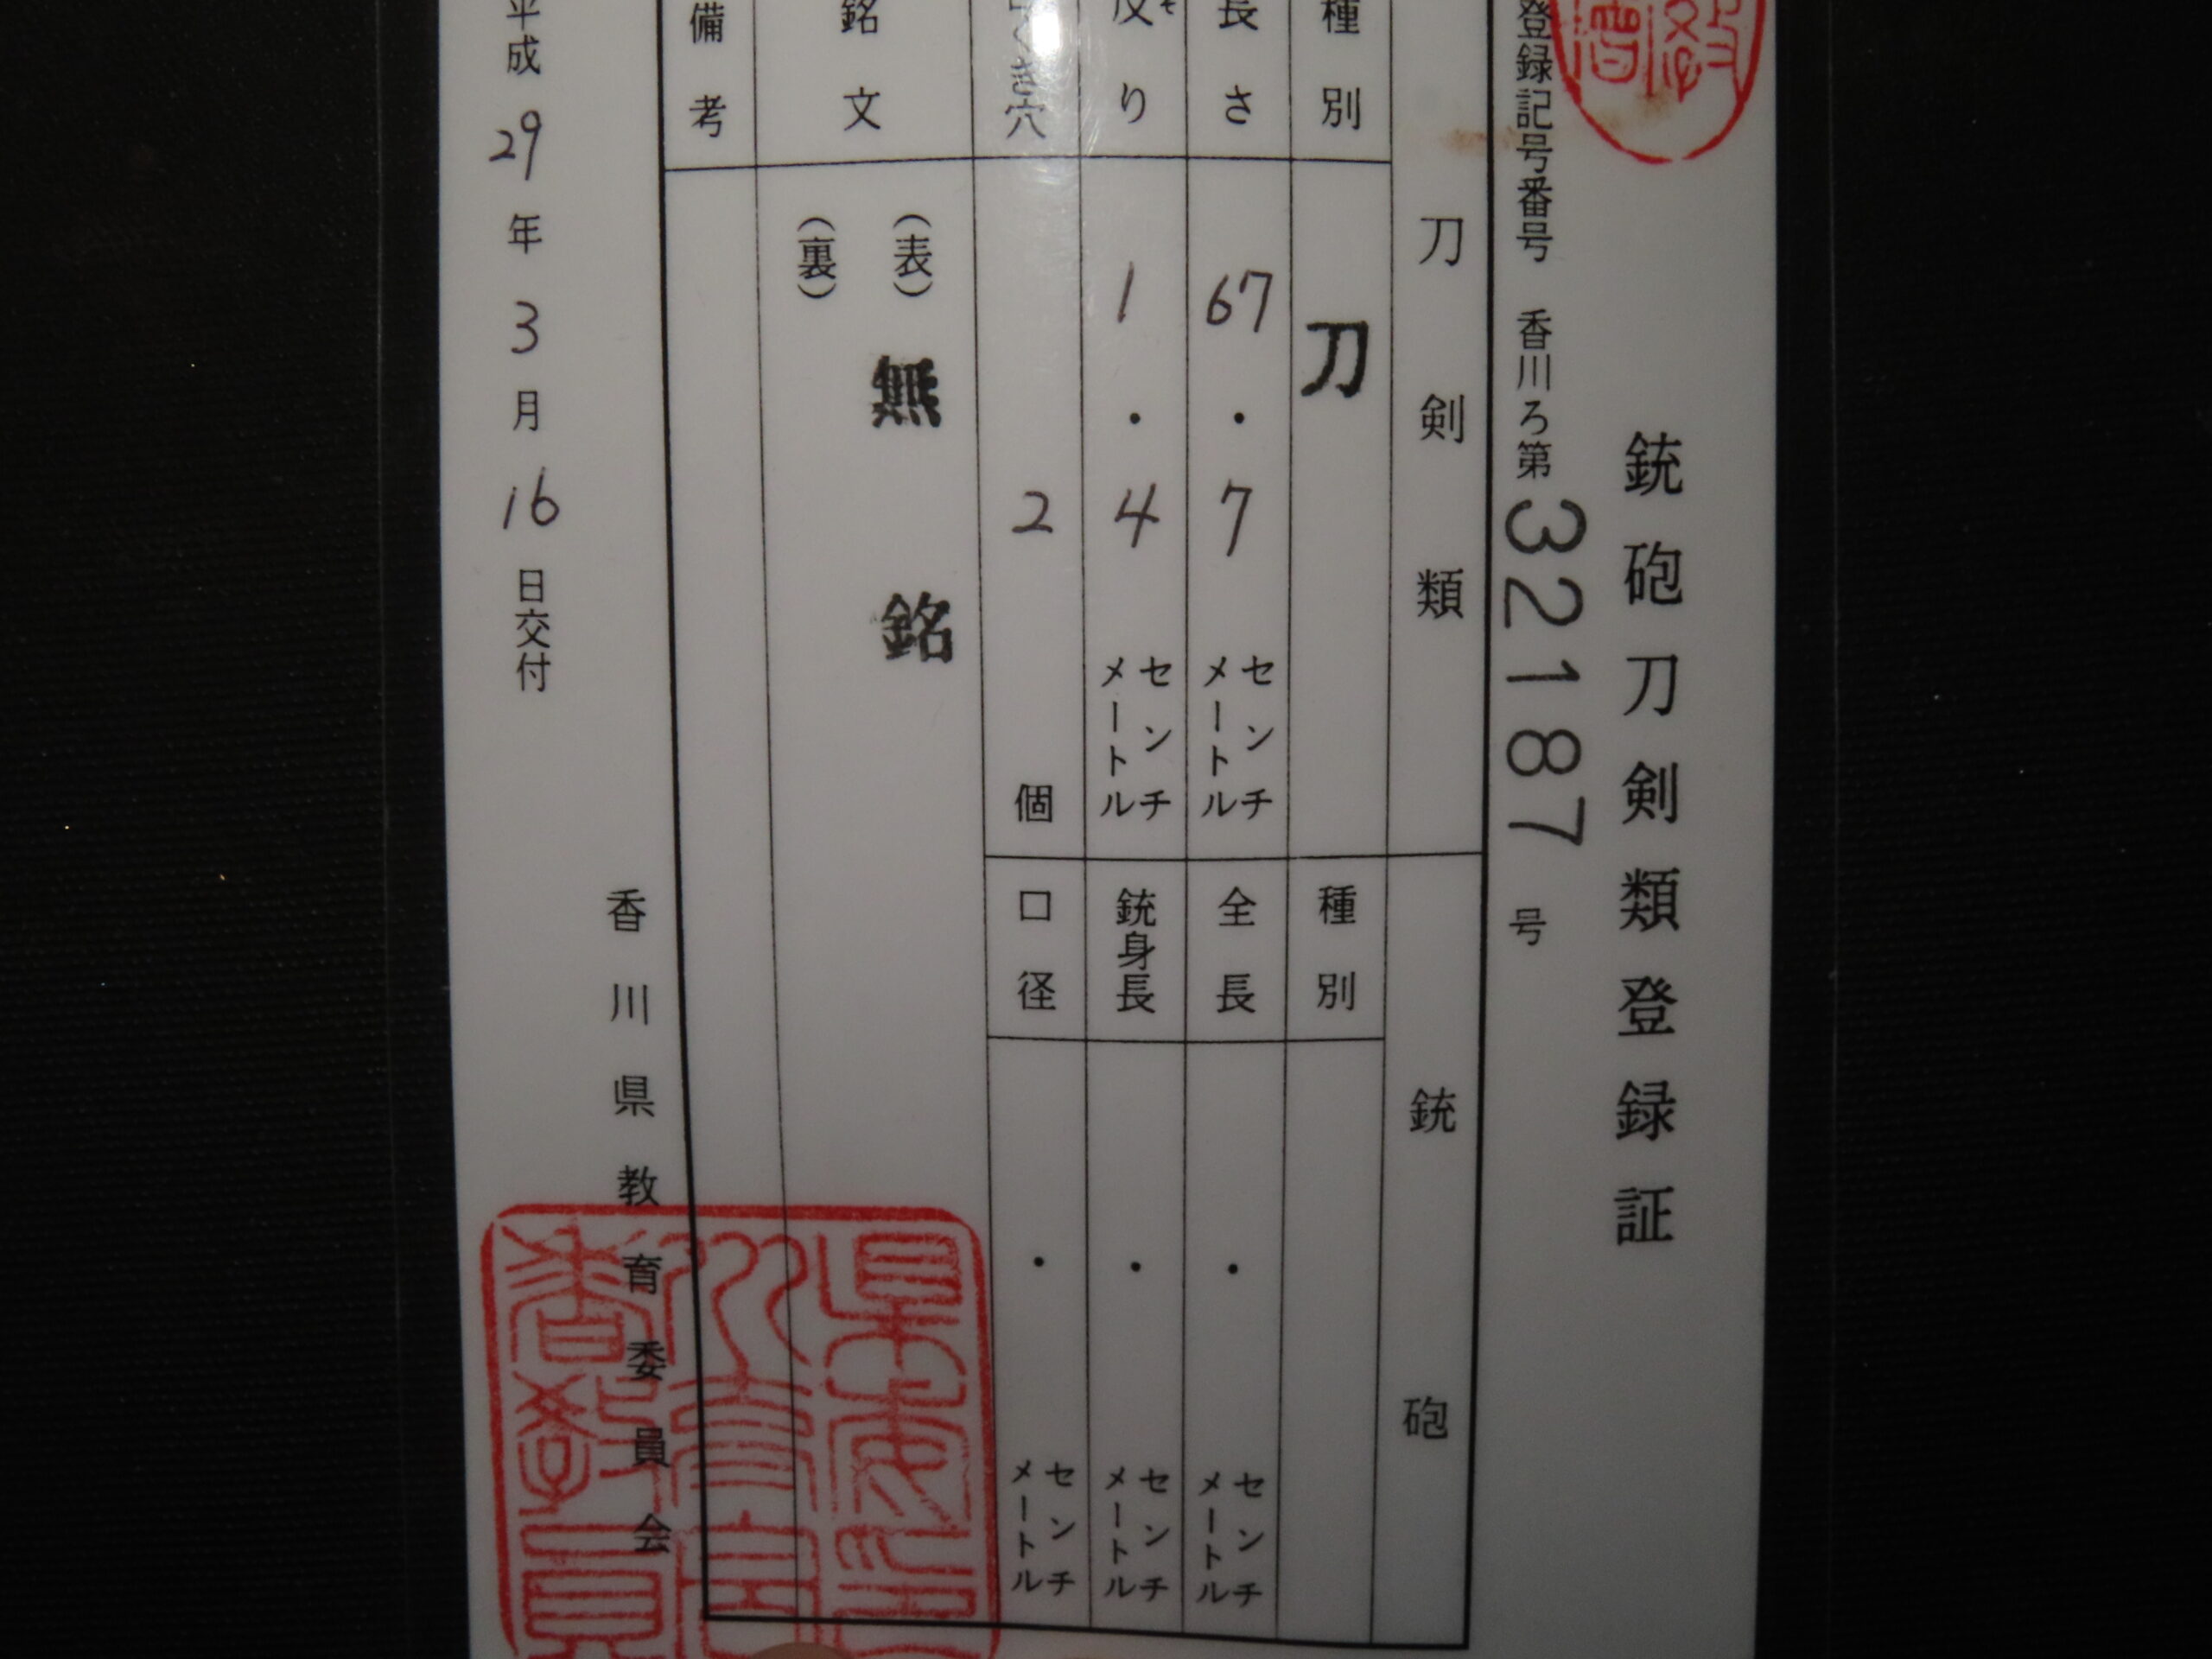 銃砲刀剣類登録証
登録記号番号 香川ろ第32187号
刀剣類
銃砲
種別 刀
種別
長さ 67.7 センチメートル
全長 ・ センチメートル
反り 1.4 センチメートル
銃身長 ・ センチメートル
くき穴 2 個
口径 ・ センチメートル
銘文 (表) 無銘
(裏)
備考
平成29年3月16日交付
香川県教育委員会